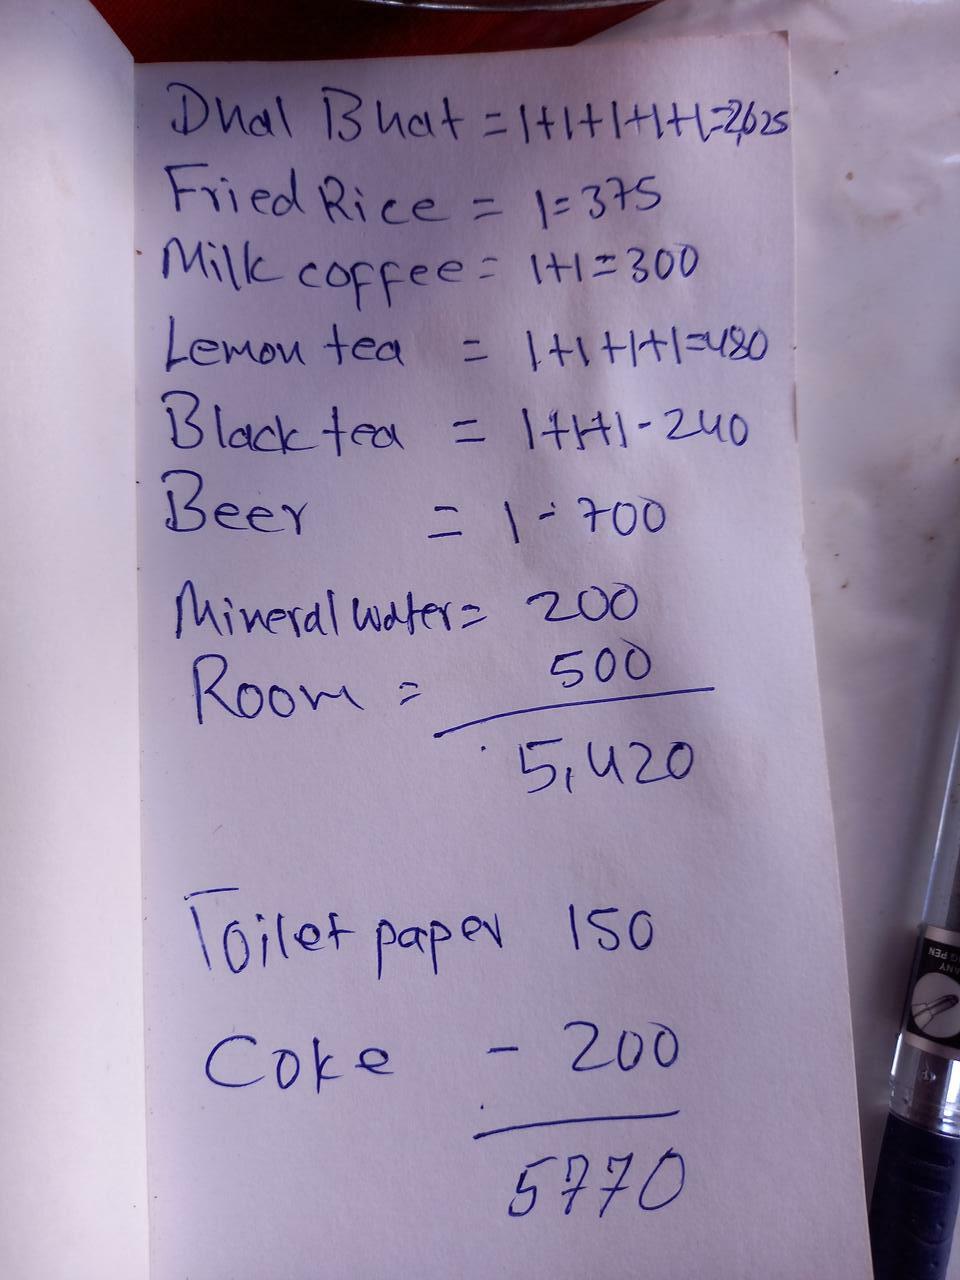 Dhal Bhat = 1+1+1+1+1=2,625
Fried Rice = 1=375
Milk coffee = 1+1=300
Lemon tea = 1+1+1+1=480
Black tea = 1+1+1-240
Beer = 1-700
Mineral water= 200
Room = 500
5,420
Toilet paper 150
Coke - 200
5770
ANY
PEN